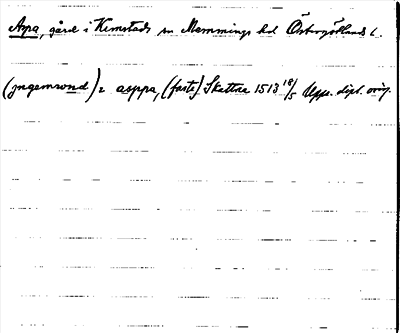 Aspa, gård i Kimstads sn Memmings hd Östergötlands l.
(jngemwnd) i asppa, (faste) Skettæ 1513 18/5 Upps. dipl. orig.